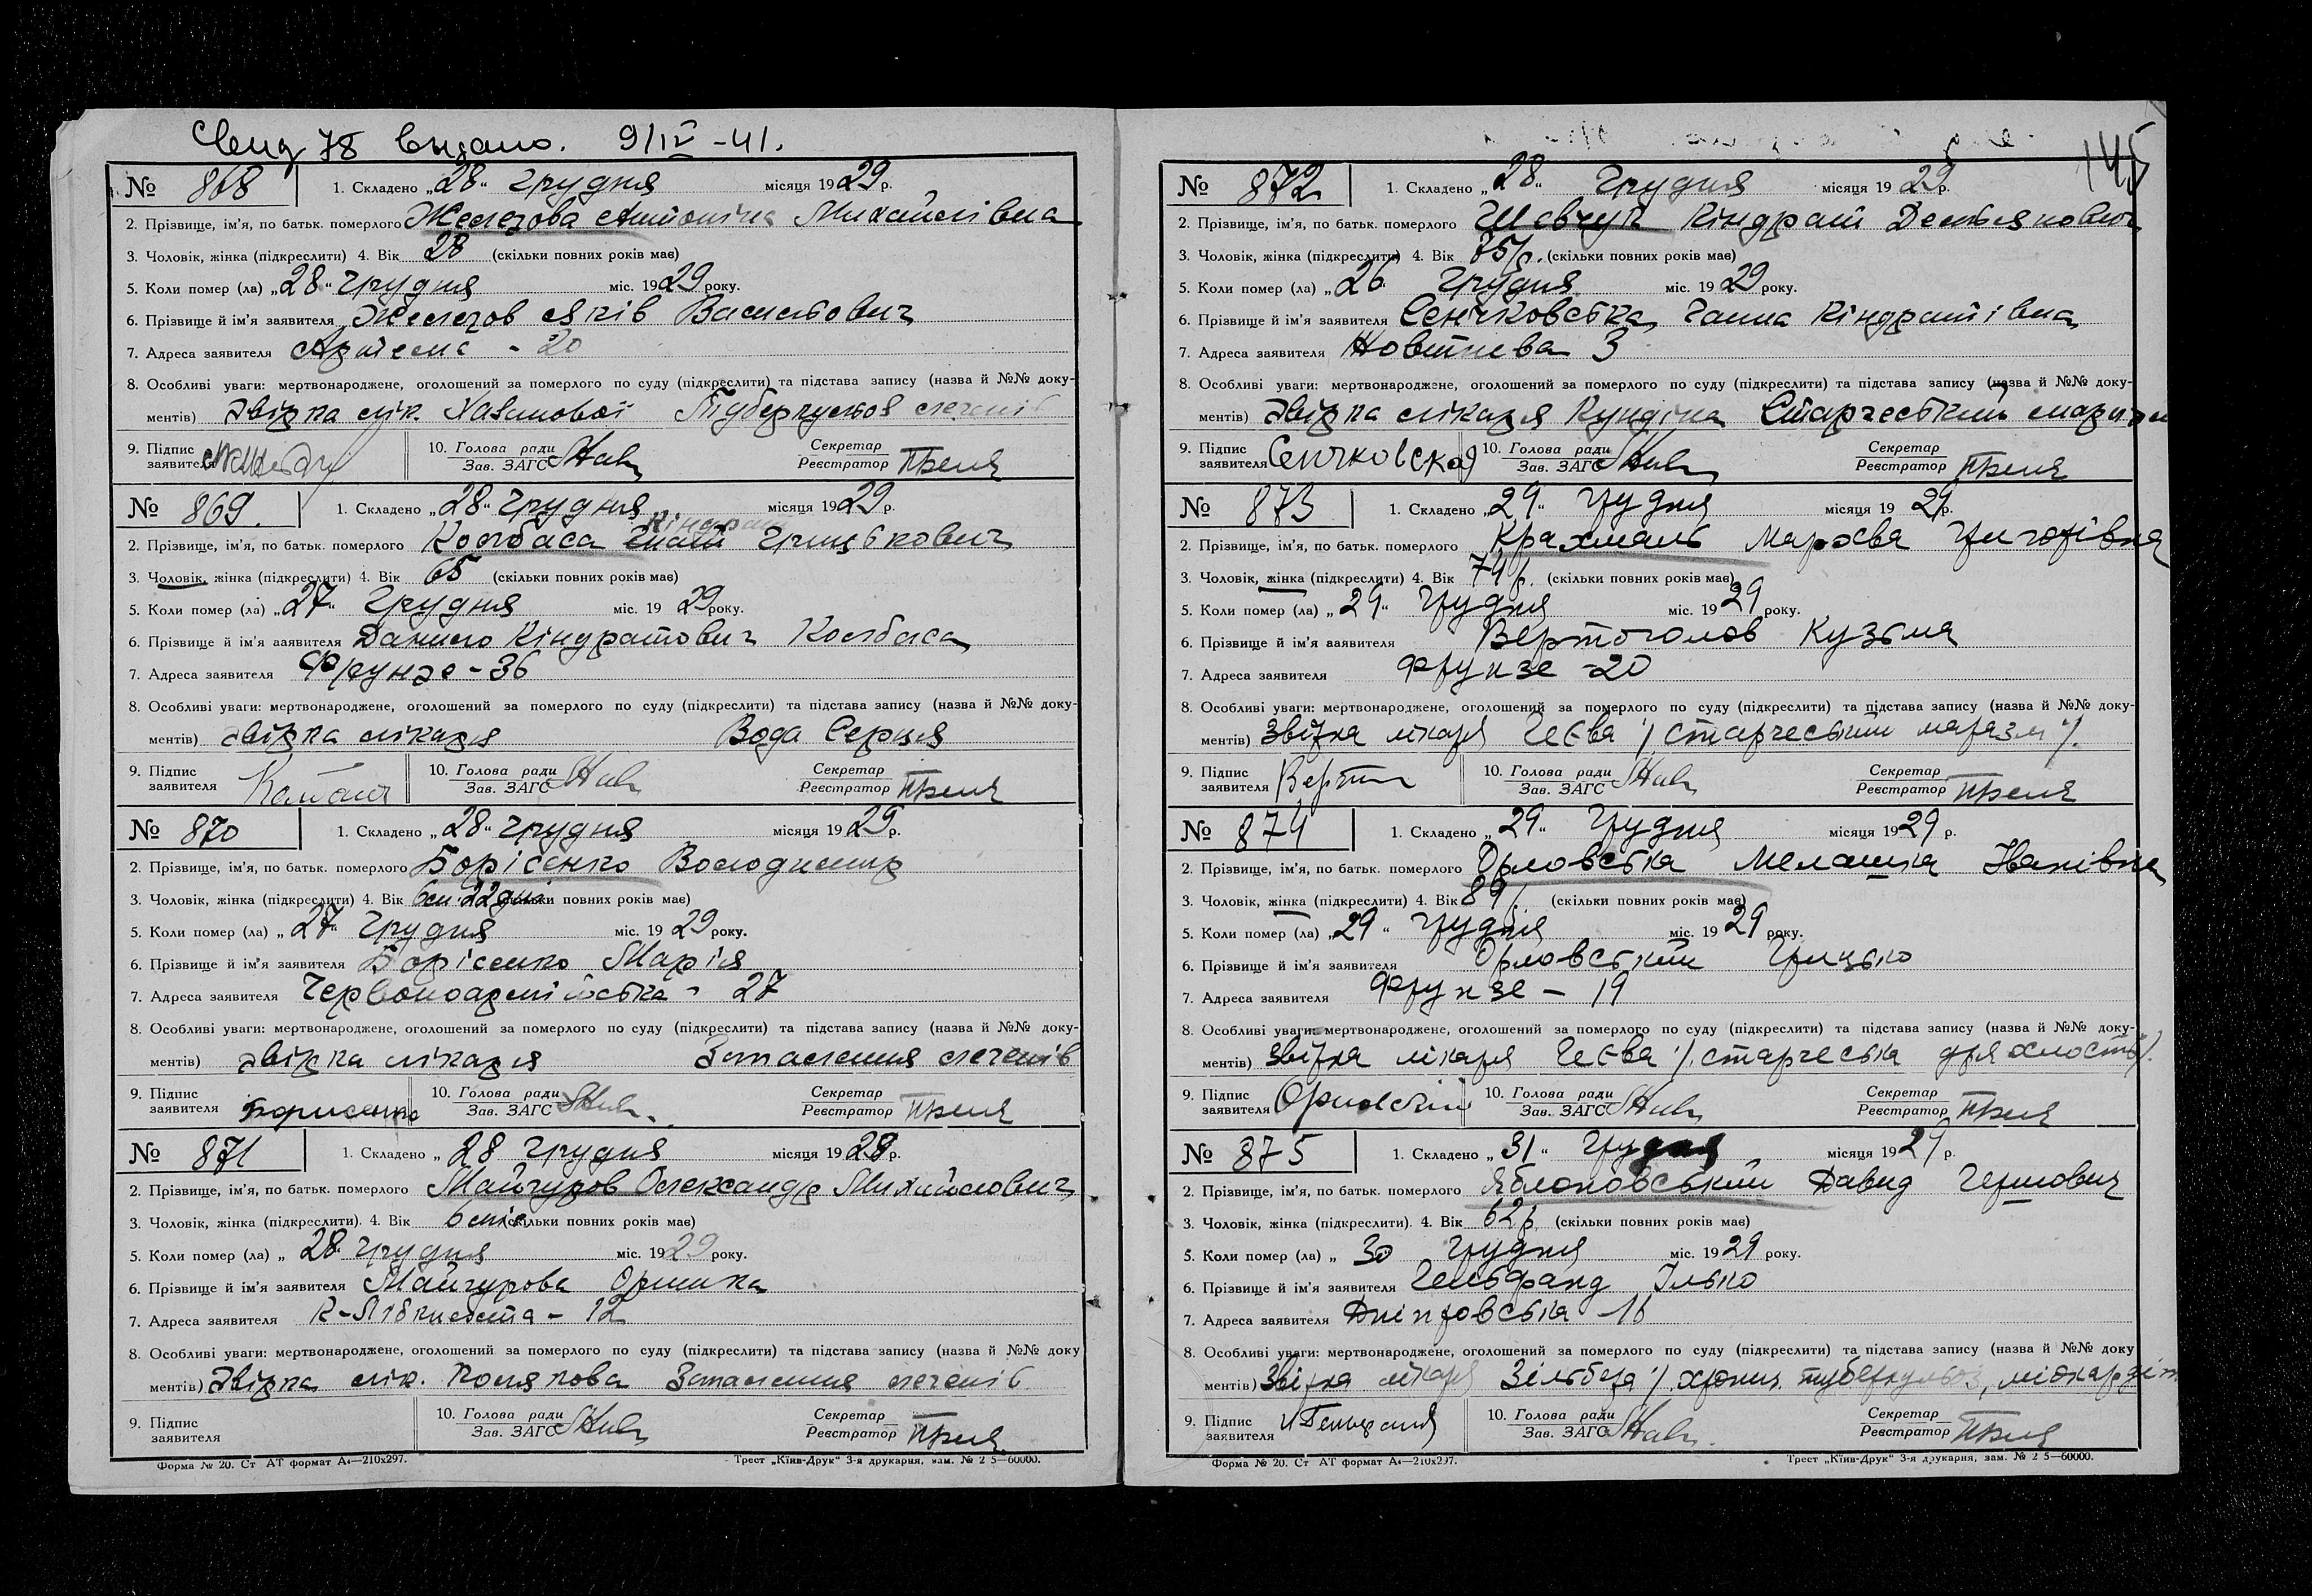 видано. 9/IV-41.
№ 868 1. Складено „28" грудня місяця 1929 р.
2. Прізвище, ім'я, по батьк. померлого Железова Антоніна Михайлівна
3. Чоловік, жінка (підкреслити) 4. Вік 28 (скільки повних років має)
5. Коли помер (ла) „28" грудня міс. 1929 року.
6. Прізвище й ім'я заявителя Железов Яків Васильович
7. Адреса заявителя Артема - 20
8. Особливі уваги: мертвонароджене, оголошений за померлого по суду (підкреслити) та підстава запису (назва й №№ доку-
ментів) Звірка лік. Туберкульоз легенів
9. Підпис заявителя 10. Голова ради Зав. ЗАГС Секретар Реєстратор
№ 869. 1. Складено „28" грудня місяця 1929 р.
Кіндрат
2. Прізвище, ім'я, по батьк. померлого Ковбаса Гнат Грицькович
3. Чоловік, жінка (підкреслити) 4. Вік 65 (скільки повних років має)
5. Коли помер (ла) „27" грудня міс. 19 29 року.
6. Прізвище й ім'я заявителя Данило Кіндратович Ковбаса
7. Адреса заявителя Фрунзе - 36
8. Особливі уваги: мертвонароджене, оголошений за померлого по суду (підкреслити) та підстава запису (назва й №№ доку-
ментів) Звірка лікаря Вада Серця
9. Підпис заявителя 10. Голова ради Зав. ЗАГС Секретар Реєстратор
№ 870 1. Складено „28" грудня місяця 1929 р.
2. Прізвище, ім'я, по батьк. померлого Борісенко Володимир
3. Чоловік, жінка (підкреслити) 4. Вік 6 м. 22 дні (скільки повних років має)
5. Коли помер (ла) „27" грудня міс. 19 29 року.
6. Прізвище й ім'я заявителя Борісенко Марія
7. Адреса заявителя Червоноармійська - 27
8. Особливі уваги: мертвонароджене, оголошений за померлого по суду (підкреслити) та підстава запису (назва й №№ доку-
ментів) Звірка лікаря Запалення легенів
9. Підпис заявителя Борисенко 10. Голова ради Зав. ЗАГС Секретар Реєстратор
№ 871 1. Складено „28 грудня місяця 1929 р.
2. Прізвище, ім'я, по батьк. померлого Майгуров Олександр Михайлович
3. Чоловік, жінка (підкреслити). 4. Вік 6 міс (скільки повних років має)
5. Коли помер (ла) „28" грудня міс. 1929 року.
6. Прізвище й ім'я заявителя Майгурова Оришка
7. Адреса заявителя К-Лібкнехта - 12
8. Особливі уваги: мертвонароджене, оголошений за померлого по суду (підкреслити) та підстава запису (назва й №№ доку
ментів) Звірка лік. Полякова Запалення легенів
9. Підпис заявителя 10. Голова ради Зав. ЗАГС Секретар Реєстратор
Форма № 20. Ст АТ формат А4—210x297. Трест „Київ-Друк" 3-я друкарня, зам. № 2 5—60000.
145
№ 872 1. Складено „28" грудня місяця 19 29 р.
2. Прізвище, ім'я, по батьк. померлого Шевчук Кіндрат Демянович
3. Чоловік, жінка (підкреслити) 4. Вік 75 р. (скільки повних років має)
5. Коли помер (ла) „26 грудня міс. 19 29 року.
6. Прізвище й ім'я заявителя Сенчковська Ганна Кіндратівна
7. Адреса заявителя 3
8. Особливі уваги: мертвонароджене, оголошений за померлого по суду (підкреслити) та підстава запису (назва й №№ доку-
ментів) Звірка лікаря Кундіна Старческий маразм
9. Підпис заявителя Сенчковская 10. Голова ради Зав. ЗАГС Секретар Реєстратор
№ 873 1. Складено „29" грудня місяця 19 29 р.
2. Прізвище, ім'я, по батьк. померлого Крахмаль Марфа Григорівна
3. Чоловік, жінка (підкреслити) 4. Вік 74 р. (скільки повних років має)
5. Коли помер (ла) „29" грудня міс. 19 29 року.
6. Прізвище й ім'я заявителя Вертоголов Кузьма
7. Адреса заявителя Фрунзе - 20
8. Особливі уваги: мертвонароджене, оголошений за померлого по суду (підкреслити) та підстава запису (назва й №№ доку-
ментів) Звірка лікаря Геєва /старческий маразм/.
9. Підпис заявителя 10. Голова ради Зав. ЗАГС Секретар Реєстратор
№ 874 1. Складено „29" грудня місяця 19 29 р.
2. Прізвище, ім'я, по батьк. померлого Орловська Мелашка Іванівна
3. Чоловік, жінка (підкреслити) 4. Вік 89 р. (скільки повних років має)
5. Коли помер (ла) „29" грудня міс. 19 29 року.
6. Прізвище й ім'я заявителя Орловський Грицько
7. Адреса заявителя Фрунзе - 19
8. Особливі уваги: мертвонароджене, оголошений за померлого по суду (підкреслити) та підстава запису (назва й №№ доку-
ментів) Звірка лікаря Геєва /старческа дряхлость/.
9. Підпис заявителя 10. Голова ради Зав. ЗАГС Секретар Реєстратор
№ 875 1. Складено „31" грудня місяця 19 29 р.
2. Прізвище, ім'я, по батьк. померлого Яблоновський Давид Гершович
3. Чоловік, жінка (підкреслити). 4. Вік 62 р. (скільки повних років має)
5. Коли помер (ла) „30 грудня міс. 19 29 року.
6. Прізвище й ім'я заявителя Гельфанд Ілько
7. Адреса заявителя Дніпровська - 16
8. Особливі уваги: мертвонароджене, оголошений за померлого по суду (підкреслити) та підстава запису (назва й №№ доку
ментів) Звірка лікаря Зільбера / хронич. туберкульоз, міокардіт
9. Підпис заявителя 10. Голова ради Зав. ЗАГС Секретар Реєстратор
Форма № 20. Ст АТ формат А4—210x297. Трест „Київ-Друк" 3-я друкарня, зам. № 2 5—60000.